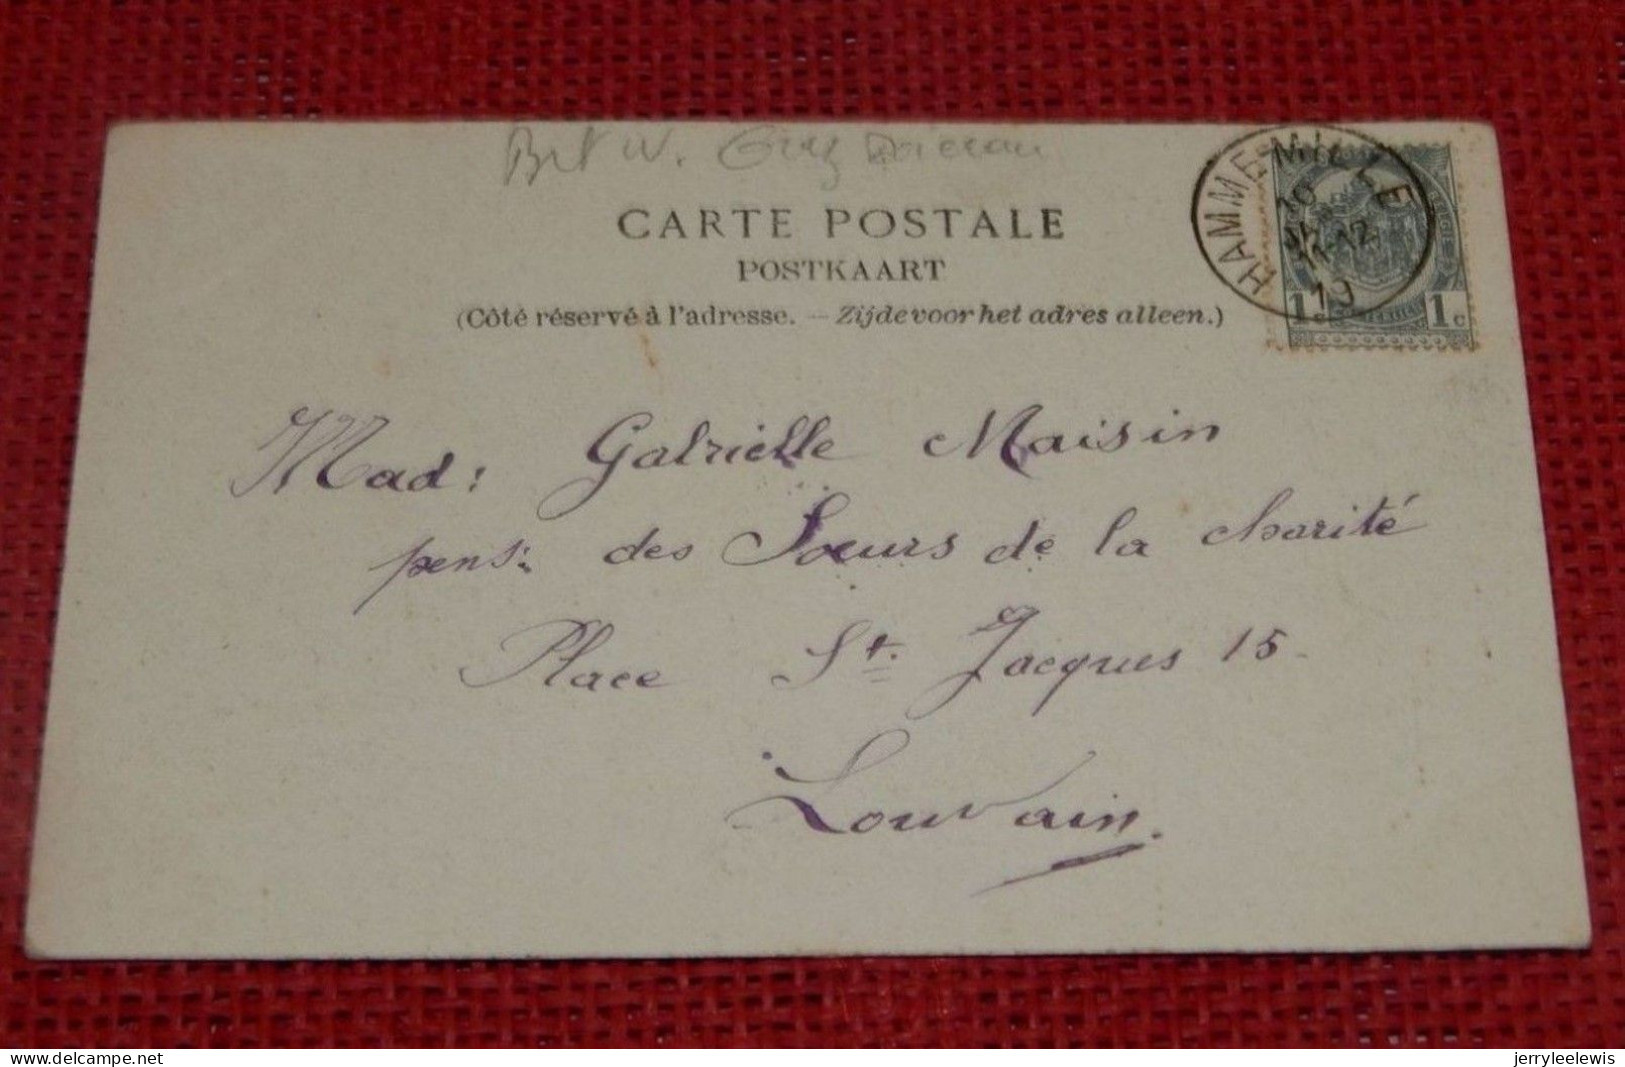 Bt W. Grez Doiceau
CARTE POSTALE
POSTKAART
(Côté réservé à l'adresse. — Zijde voor het adres alleen.)
HAMME-MILLE
10
11-12
19
1c 1c
Mad: Gabrielle Maisin
pens: des Sœurs de la charité
Place St. Jacques 15
Louvain.
Click to see large
jerryleelewis